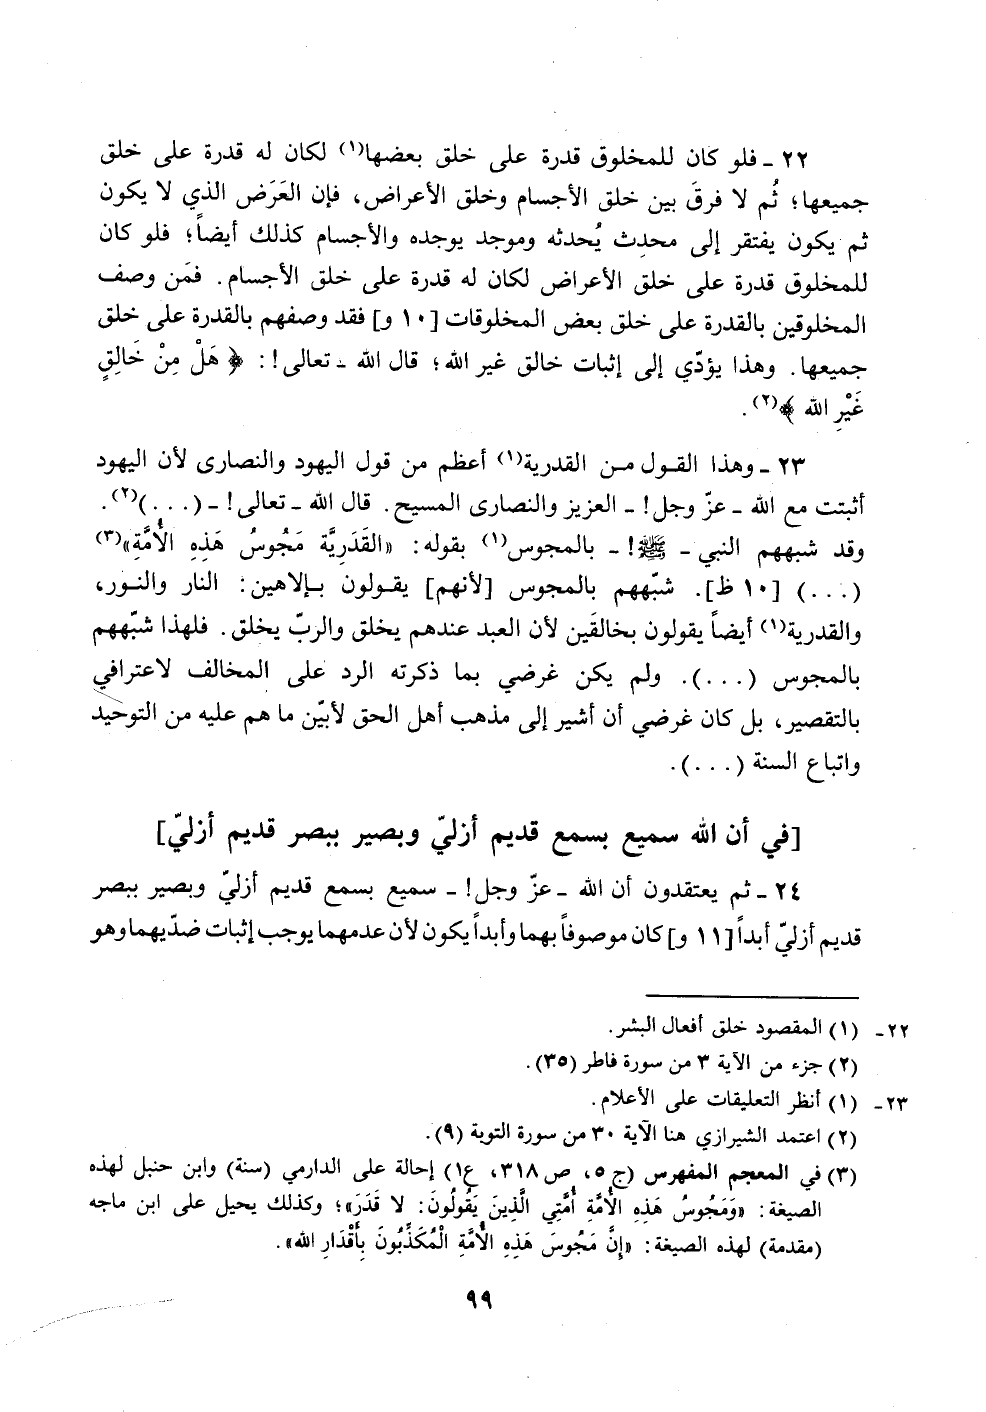 ٢٢ ـ فلو كان للمخلوق قدرة على خلق بعضها(١) لكان له قدرة على خلق
جميعها؛ ثُم لا فرقَ بين خلق الأجسام وخلق الأعراض، فإن العَرَض الذي لا يكون
ثم يكون يفتقر إلى محدِث يُحدثه وموجد يوجده والأجسام كذلك أيضاً؛ فلو كان
للمخلوق قدرة على خلق الأعراض لكان له قدرة على خلق الأجسام. فمَن وصف
المخلوقين بالقدرة على خلق بعض المخلوقات [١٠ و] فقد وصفهم بالقدرة على خلق
جميعها. وهذا يؤدّي إلى إثبات خالق غير الله؛ قال الله ـ تعالى!: ﴿ هَلْ مِنْ خَالِقٍ
غَيْرِ الله ﴾(٢).
٢٣ ـ وهذا القول من القدرية(١) أعظم من قول اليهود والنصارى لأن اليهود
أثبتت مع الله ـ عزّ وجل! ـ العزيز والنصارى المسيح. قال الله ـ تعالى! ـ (...)(٢).
وقد شبههم النبي ـ ﷺ! ـ بالمجوس(١) بقوله: «القَدَرِيَّة مَجُوسُ هَذِهِ الأُمَّةِ»(٣)
(...) [١٠ ظ]. شبّههم بالمجوس [لأنهم] يقولون بإلاهين: النار والنور،
والقدرية(١) أيضاً يقولون بخالقَين لأن العبد عندهم يخلق والربّ يخلق. فلهذا شبّههم
بالمجوس (...). ولم يكن غرضي بما ذكرته الرد على المخالف لاعترافي
بالتقصير، بل كان غرضي أن أشير إلى مذهب أهل الحق لأبيّن ما هم عليه من التوحيد
واتباع السنة (...).
[في أن الله سميع بسمع قديم أزليّ وبصير ببصر قديم أزليّ]
٢٤ ـ ثم يعتقدون أن الله ـ عزّ وجل! ـ سميع بسمع قديم أزليّ وبصير ببصر
قديم أزليّ أبداً [١١ و] كان موصوفاً بهما وأبداً يكون لأن عدمهما يوجب إثبات ضدّيهما وهو
٢٢ـ (١) المقصود خلق أفعال البشر.
(٢) جزء من الآية ٣ من سورة فاطر (٣٥).
٢٣ـ (١) أنظر التعليقات على الأعلام.
(٢) اعتمد الشيرازي هنا الآية ٣٠ من سورة التوبة (٩).
(٣) في المعجم المفهرس (ج ٥، ص ٣١٨، ع١) إحالة على الدارمي (سنة) وابن حنبل لهذه
الصيغة: «وَمَجُوسُ هَذِهِ الأُمَّةِ أُمَّتِي الَّذِينَ يَقُولُونَ: لا قَدَرَ»؛ وكذلك يحيل على ابن ماجه
(مقدمة) لهذه الصيغة: «إِنَّ مَجُوسَ هَذِهِ الأُمَّةِ الْمُكَذِّبُونَ بِأَقْدَارِ الله».
٩٩